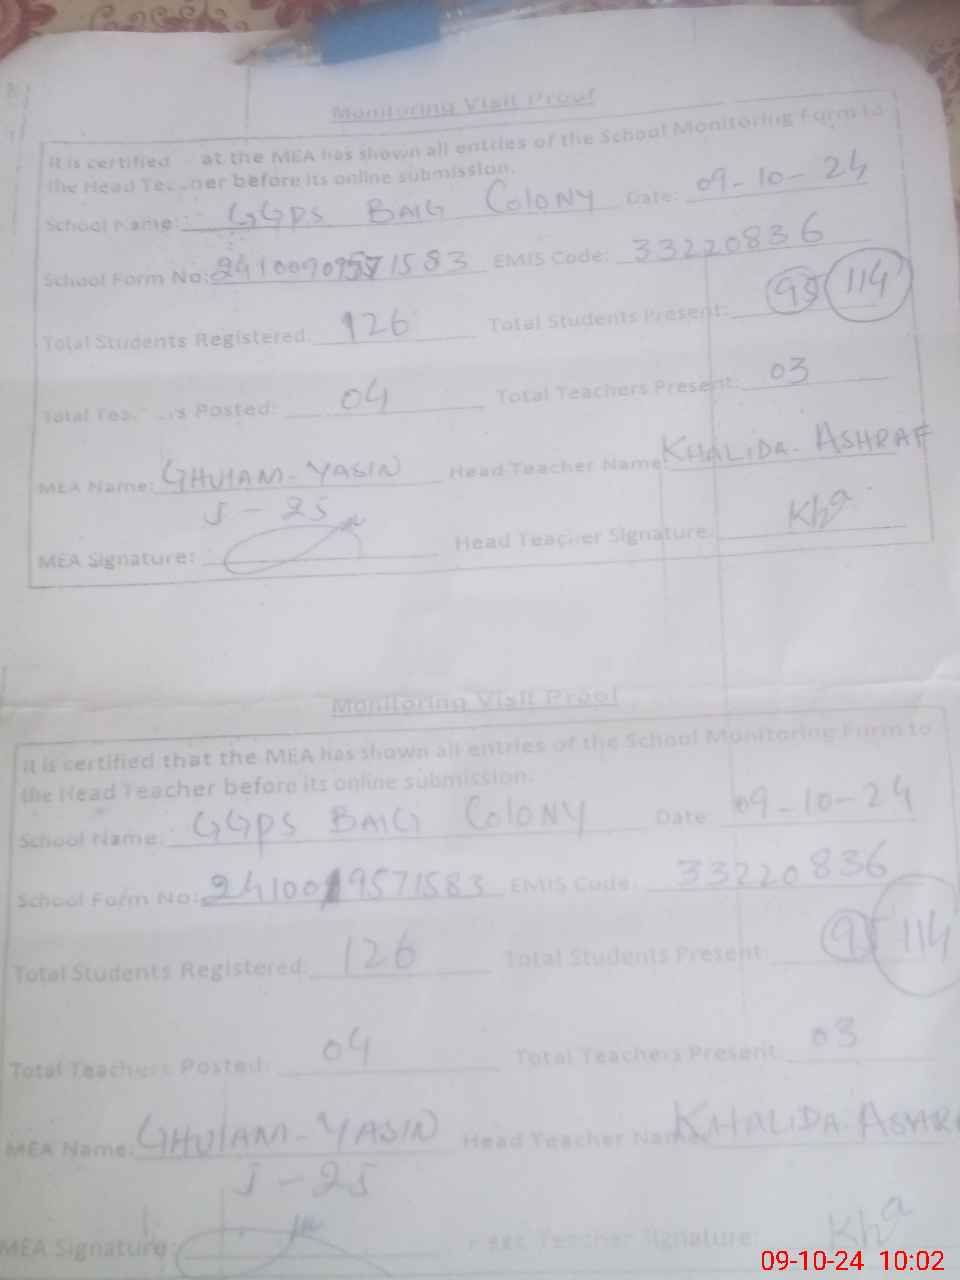 Monitoring Visit Proof
It is certified at the MEA has shown all entries of the School Monitoring Form to
the Head Teacher before its online submission.
School Name: GGPS BAIG COLONY Date: 09-10-24
School Form No: EMIS Code: 33220836
Total Students Registered: 126 Total Students Present: 95 114
Total Teachers Posted: 04 Total Teachers Present: 03
MEA Name: GHULAM-YASIN Head Teacher Name: KHALIDA-ASHRAF
J-25
MEA Signature: Head Teacher Signature: Kha
Monitoring Visit Proof
It is certified that the MEA has shown all entries of the School Monitoring Form to
the Head Teacher before its online submission.
School Name: GGPS BAIG COLONY Date: 09-10-24
School Form No: EMIS Code: 33220836
Total Students Registered: 126 Total Students Present: 95 114
Total Teachers Posted: 04 Total Teachers Present: 03
MEA Name: GHULAM-YASIN Head Teacher Name: KHALIDA-ASHRA
J-25
MEA Signature: Head Teacher Signature: Kha
09-10-24 10:02